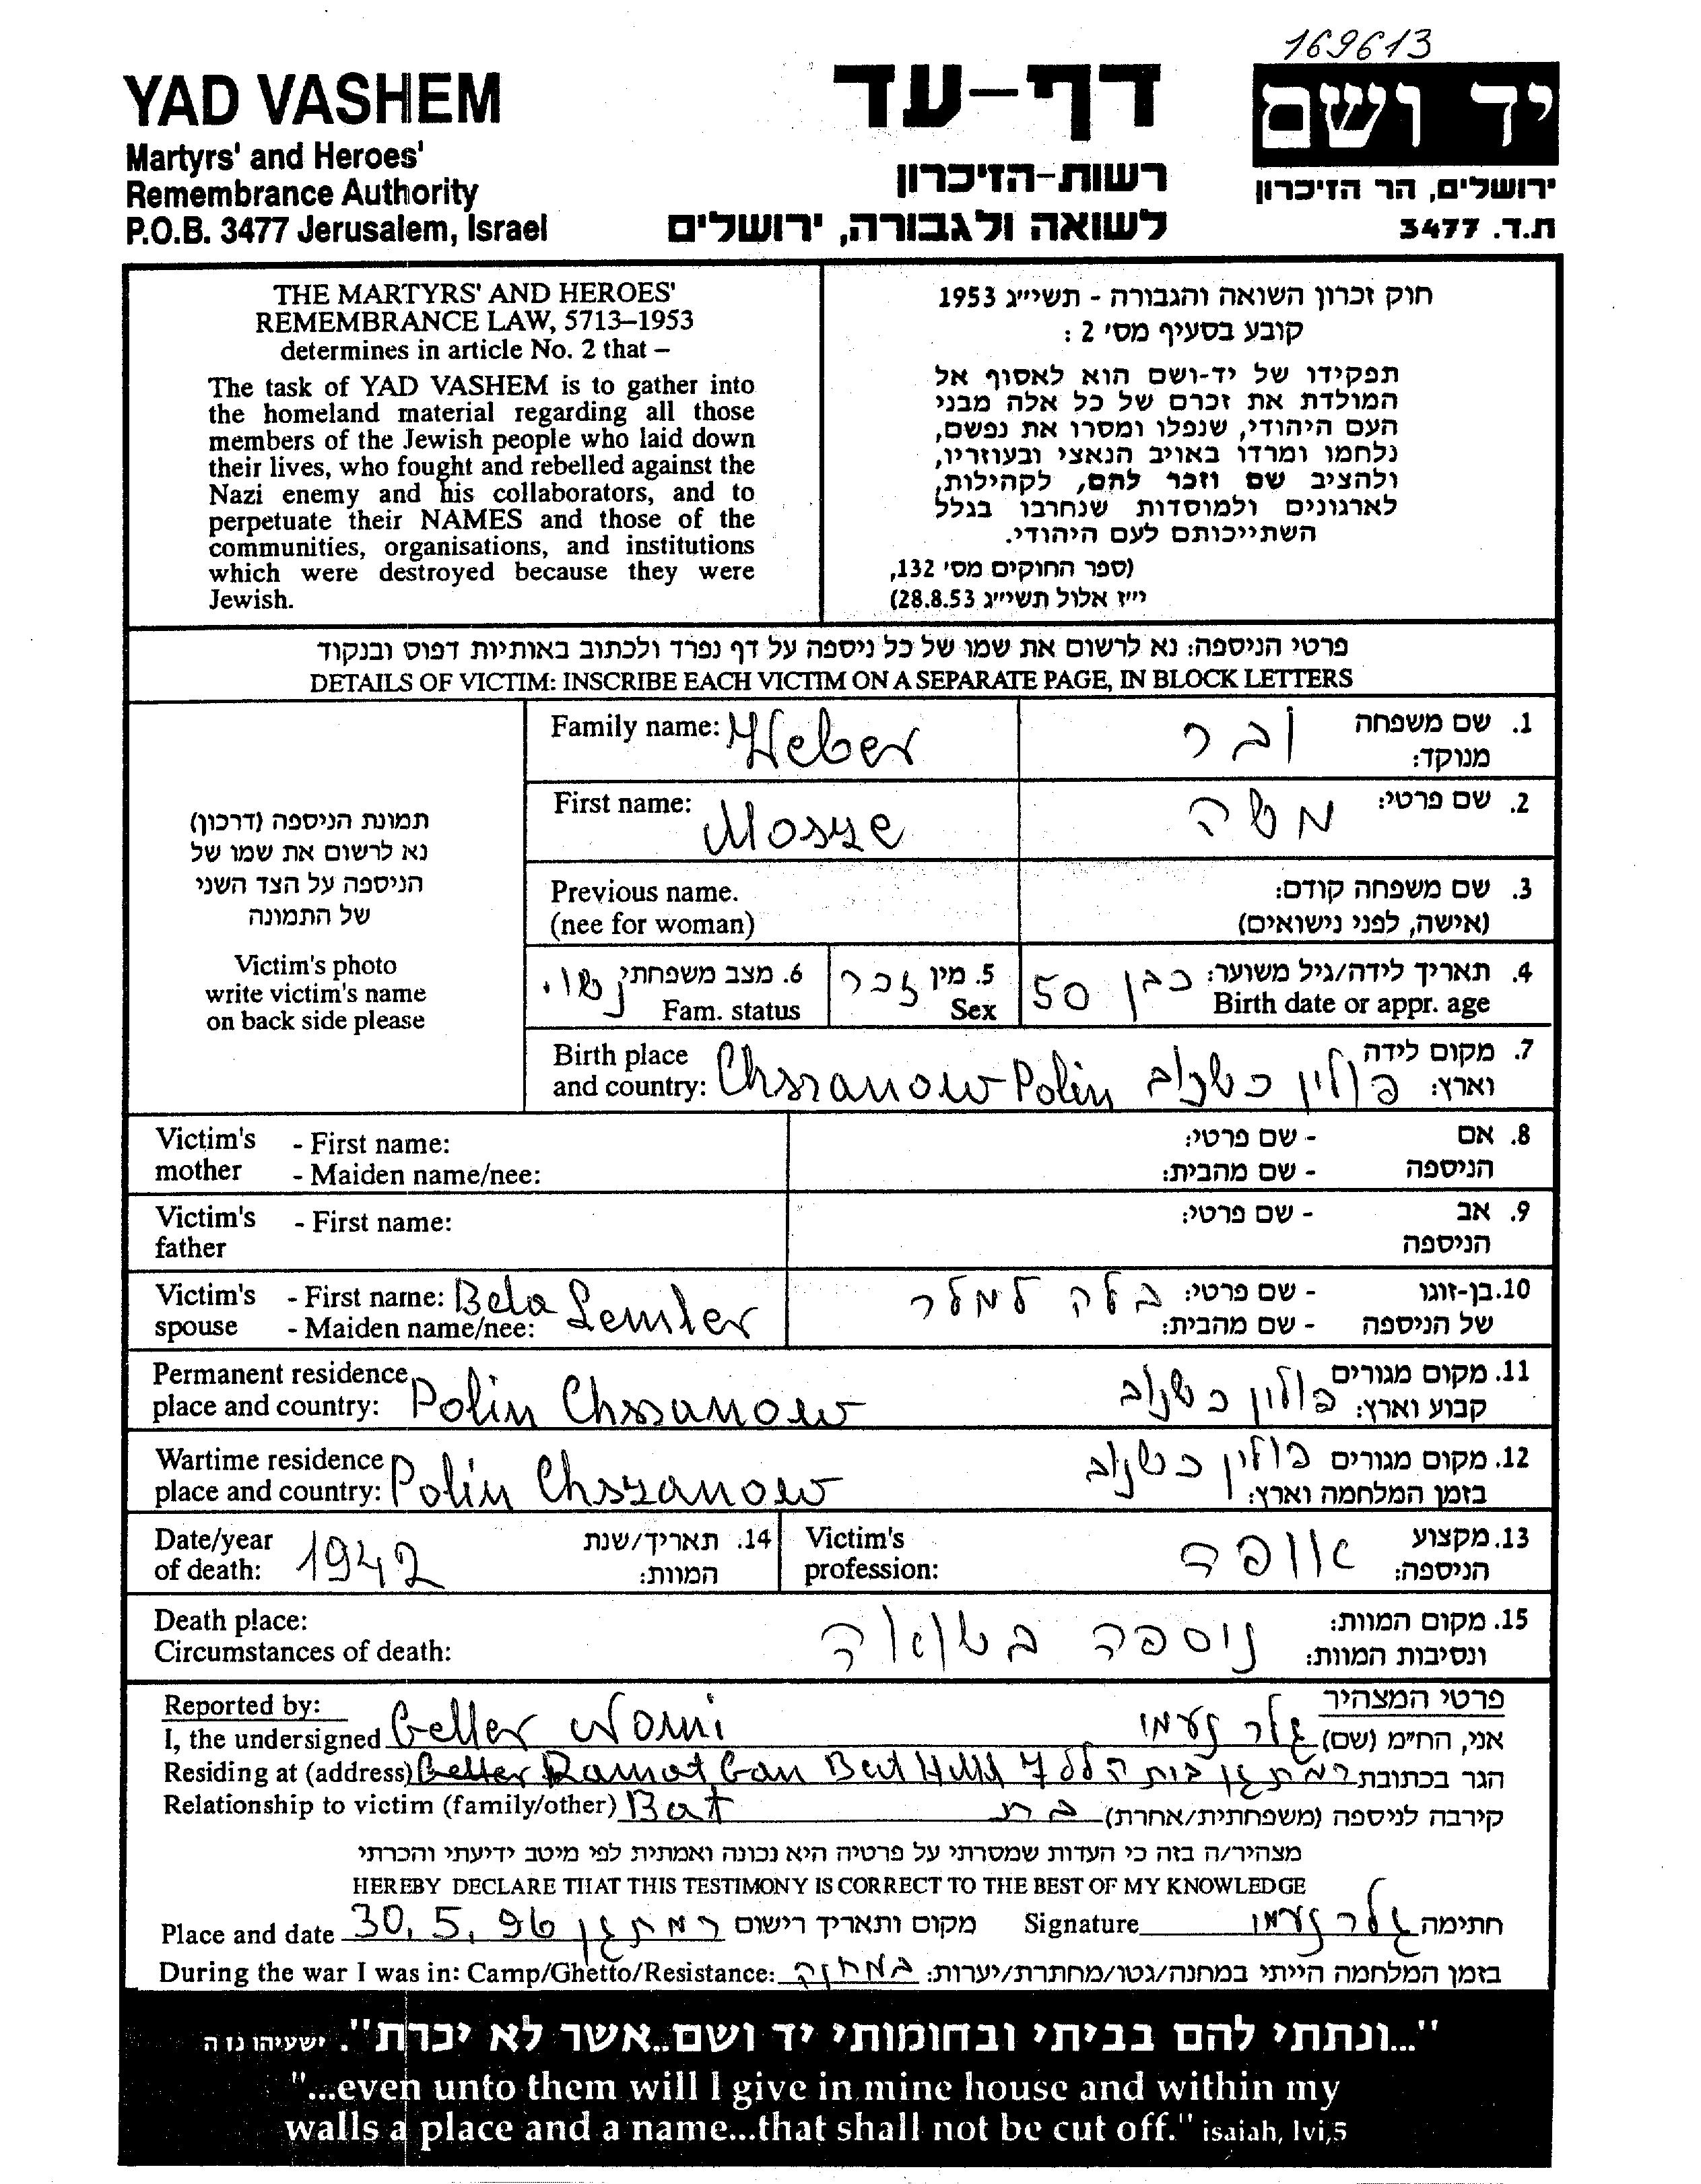 169613
YAD VASHEM
Martyrs' and Heroes'
Remembrance Authority
P.O.B. 3477 Jerusalem, Israel
דף-עד
רשות-הזיכרון
לשואה ולגבורה, ירושלים
יד ושם
ירושלים, הר הזיכרון
ת.ד. 3477
THE MARTYRS' AND HEROES'
REMEMBRANCE LAW, 5713–1953
determines in article No. 2 that –
The task of YAD VASHEM is to gather into
the homeland material regarding all those
members of the Jewish people who laid down
their lives, who fought and rebelled against the
Nazi enemy and his collaborators, and to
perpetuate their NAMES and those of the
communities, organisations, and institutions
which were destroyed because they were
Jewish.
חוק זכרון השואה והגבורה - תשי״ג 1953
קובע בסעיף מס' 2 :
תפקידו של יד-ושם הוא לאסוף אל
המולדת את זכרם של כל אלה מבני
העם היהודי, שנפלו ומסרו את נפשם,
נלחמו ומרדו באויב הנאצי ובעוזריו,
ולהציב שם וזכר להם, לקהילות,
לארגונים ולמוסדות שנחרבו בגלל
השתייכותם לעם היהודי.
(ספר החוקים מס' 132,
י״ז אלול תשי״ג 28.8.53)
פרטי הניספה: נא לרשום את שמו של כל ניספה על דף נפרד ולכתוב באותיות דפוס ובנקוד
DETAILS OF VICTIM: INSCRIBE EACH VICTIM ON A SEPARATE PAGE, IN BLOCK LETTERS
תמונת הניספה (דרכון)
נא לרשום את שמו של
הניספה על הצד השני
של התמונה
Victim's photo
write victim's name
on back side please
Family name: Weber
1. שם משפחה מנוקד: ובר
First name: Mosze
2. שם פרטי: משה
Previous name.
(nee for woman)
3. שם משפחה קודם:
(אישה, לפני נישואים)
4. תאריך לידה/גיל משוער: כבן 50
Birth date or appr. age
5. מין זכר
Sex
6. מצב משפחתי נשוי.
Fam. status
Birth place
and country: Chszanow Polin
7. מקום לידה
וארץ: פולין כשנוב
Victim's mother - First name:
- Maiden name/nee:
8. אם הניספה - שם פרטי:
- שם מהבית:
Victim's father - First name:
9. אב הניספה - שם פרטי:
Victim's spouse - First name: Bela
- Maiden name/nee: Lemler
10. בן-זוגו של הניספה - שם פרטי: בלה למלר
- שם מהבית:
Permanent residence
place and country: Polin Chszanow
11. מקום מגורים
קבוע וארץ: פולין כשנוב
Wartime residence
place and country: Polin Chszanow
12. מקום מגורים
בזמן המלחמה וארץ: פולין כשנוב
Date/year
of death: 1942
14. תאריך/שנת
המוות:
Victim's
profession:
13. מקצוע
הניספה: אופה
Death place:
Circumstances of death:
15. מקום המוות:
ונסיבות המוות: ניספה בשואה
Reported by:
פרטי המצהיר
I, the undersigned Geller Nomi
אני, החי״מ (שם) גלר נעמי
Residing at (address) Geller Ramat Gan Beit Hilel 7
הגר בכתובת רמת גן בית הלל
Relationship to victim (family/other) Bat
קירבה לניספה (משפחתית/אחרת) בת
מצהיר/ה בזה כי העדות שמסרתי על פרטיה היא נכונה ואמתית לפי מיטב ידיעתי והכרתי
HEREBY DECLARE THAT THIS TESTIMONY IS CORRECT TO THE BEST OF MY KNOWLEDGE
Place and date 30.5.96 רמת גן מקום ותאריך רישום
Signature גלר נעמי חתימה
During the war I was in: Camp/Ghetto/Resistance: במחנה בזמן המלחמה הייתי במחנה/גטו/מחתרת/יערות:
"...ונתתי להם בביתי ובחומותי יד ושם..אשר לא יכרת". ישעיהו נו ה
"...even unto them will I give in mine house and within my
walls a place and a name...that shall not be cut off." isaiah, lvi,5